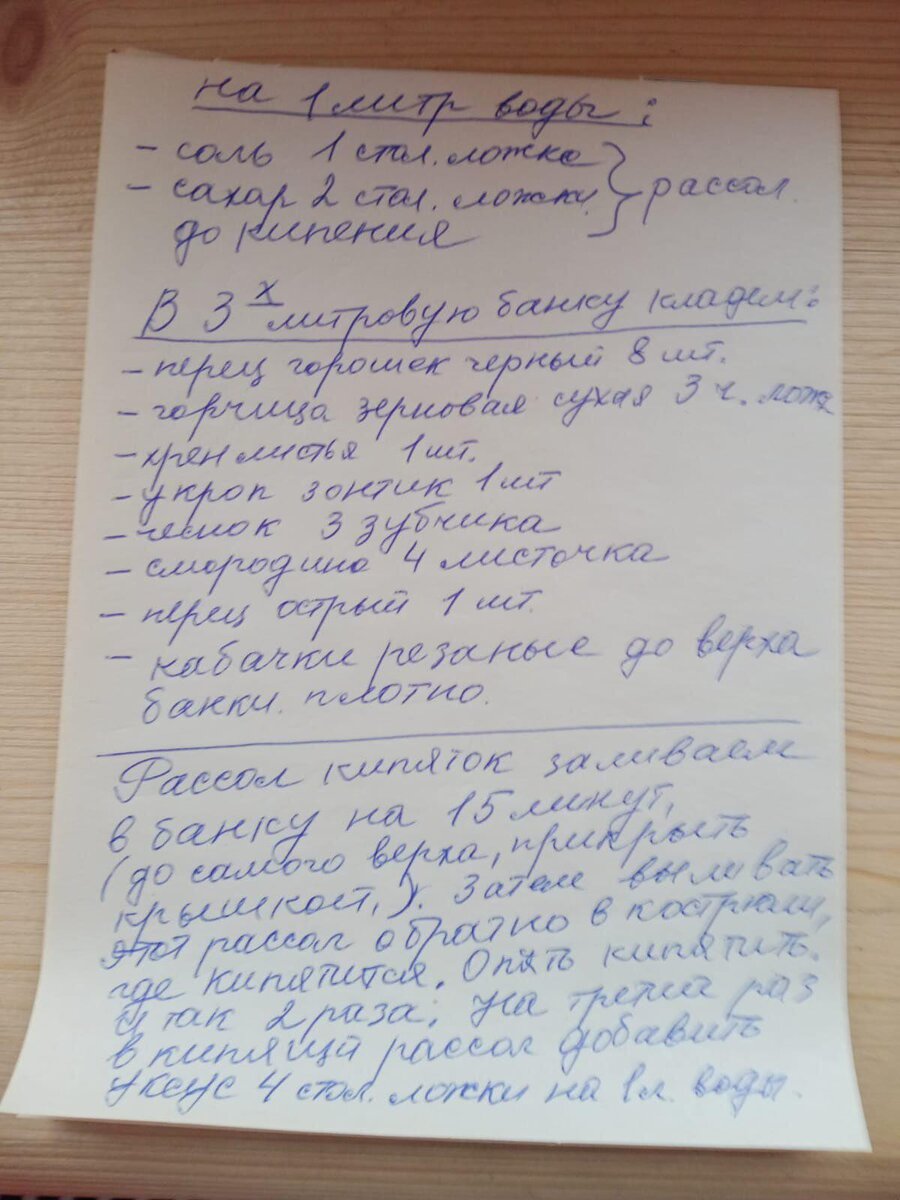 на 1 литр воды:
- соль 1 стол. ложка } рассол.
- сахар 2 стол. ложки.
до кипения
В 3х литровую банку кладем:
- перец горошек черный 8 шт.
- горчица зерновая сухая 3 ч. лож
- хрен листья 1 шт.
- укроп зонтик 1 шт
- чеснок 3 зубчика
- смородина 4 листочка
- перец острый 1 шт.
- кабачки резаные до верха
банки. плотно.
Рассол кипяток заливаем
в банку на 15 минут,
(до самого верха, прикрыть
крышкой,). Затем выливать
этот рассол обратно в кострюлю,
где кипятится. Опять кипятить.
и так 2 раза; На третий раз
в кипящй рассол добавить
уксус 4 стол. ложки на 1 л. воды.